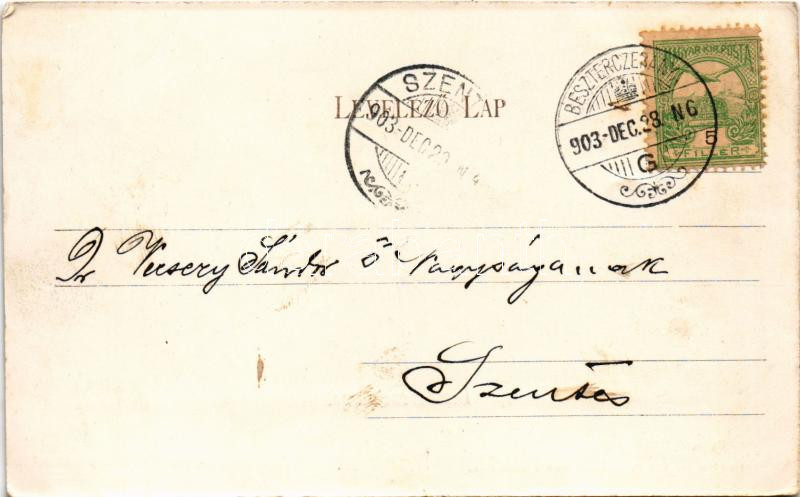 LEVELEZŐ LAP
SZENT
903-DEC.29
BESZTERCZEBÁNYA
903-DEC.28. N6
G
MAGYAR KIR. POSTA
5
FILLÉR
Dr Vecsery Sándor ő Nagyságának
Szentes